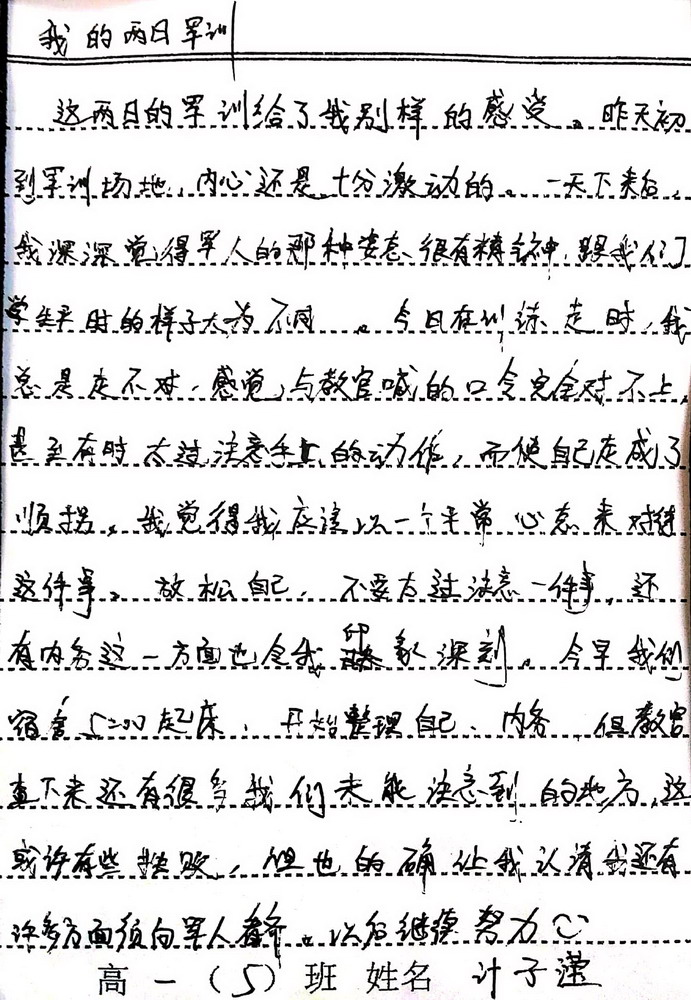 我的两日军训
这两日的军训给了我别样的感受。昨天初
到军训场地,内心还是十分激动的。一天下来后,
我深深觉得军人的那种姿态很有精气神,跟我们
学生平时的样子大为不同。今日在训练走时,我
总是走不对,感觉与教官喊的口令完全对不上,
甚至有时太过注意手上的动作,而使自己走成了
顺拐。我觉得我应该以一个平常心态来对待
这件事。放松自己,不要太过注意一件事,还
有内务这一方面也令我印象深刻。今早我们
宿舍5:00起床,开始整理自己、内务,但教官
查下来还有很多我们未能注意到的地方,这
或许有些挫败,但也的确让我认清我还有
许多方面须向军人看齐。以后继续努力
高一(5)班 姓名 计子滢